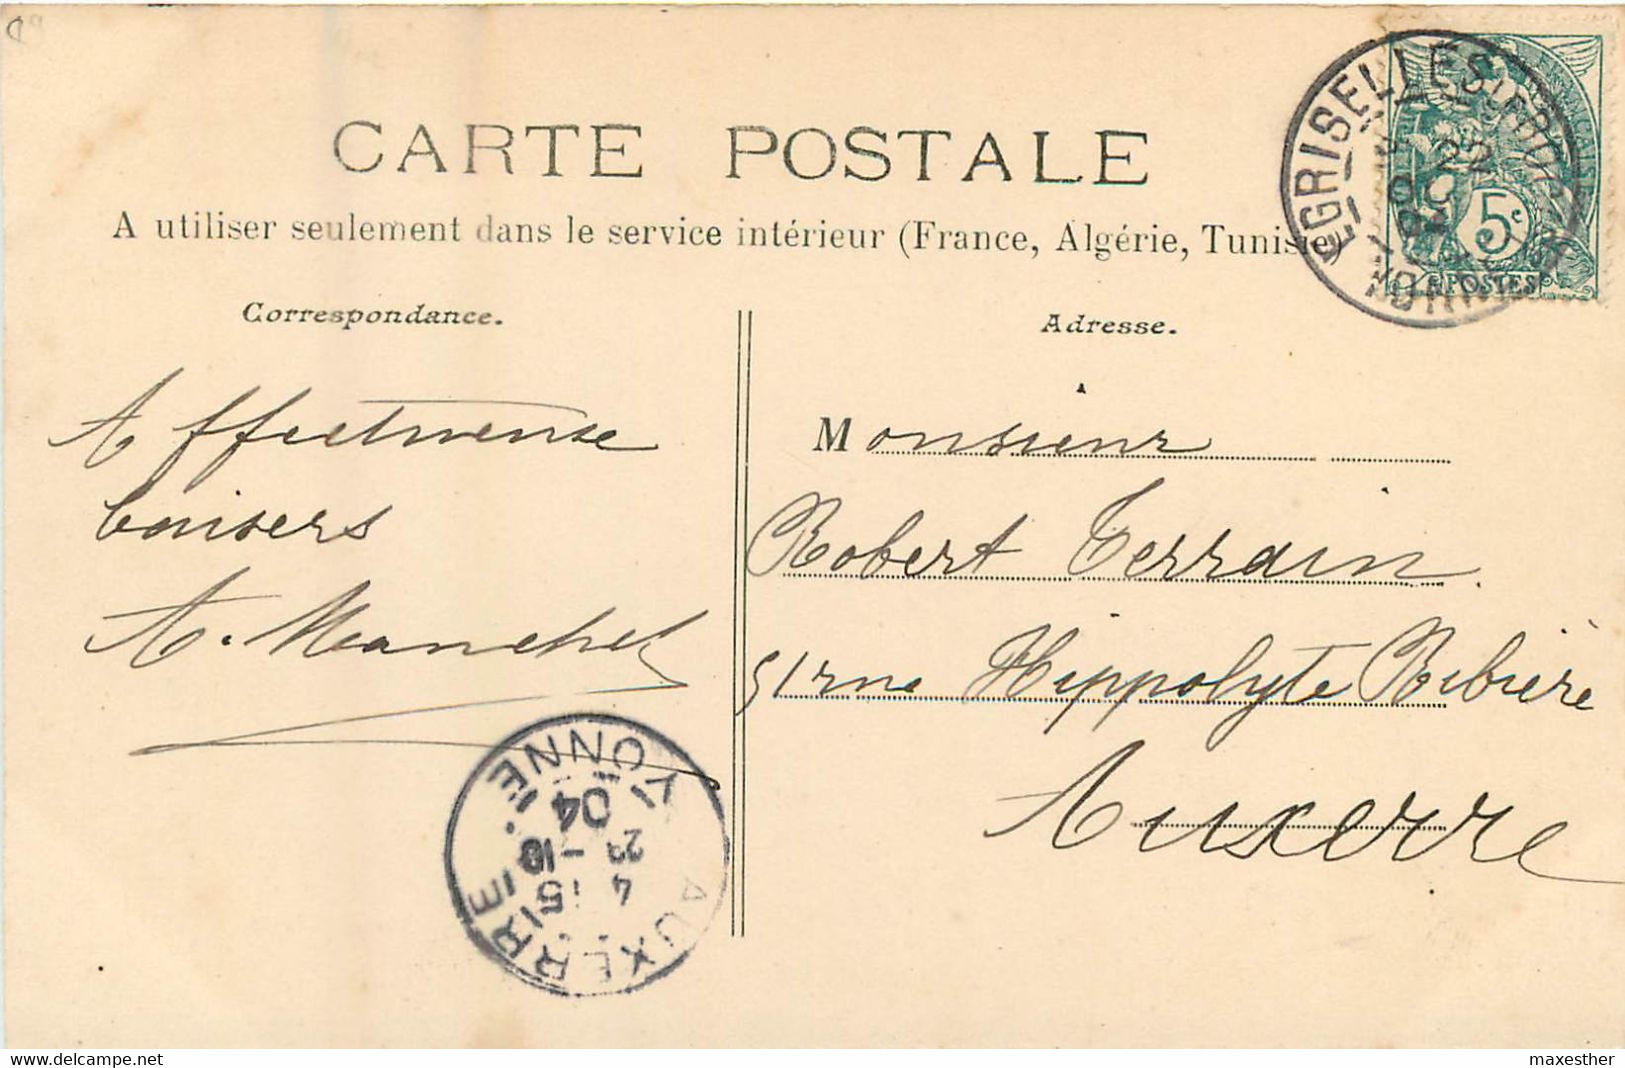 CARTE POSTALE
A utiliser seulement dans le service intérieur (France, Algérie, Tunisie)
Correspondance.
Adresse.
Affectueuse
baisers
A. Manchel
Monsieur
Robert Terrain
51 rue Hippolyte Ribière
Auxerre
EGRISELLES-
22
YONNE
5c
POSTES
AUXERRE
YONNE
4
15
23 -10
04
delcampe.net
maxesther